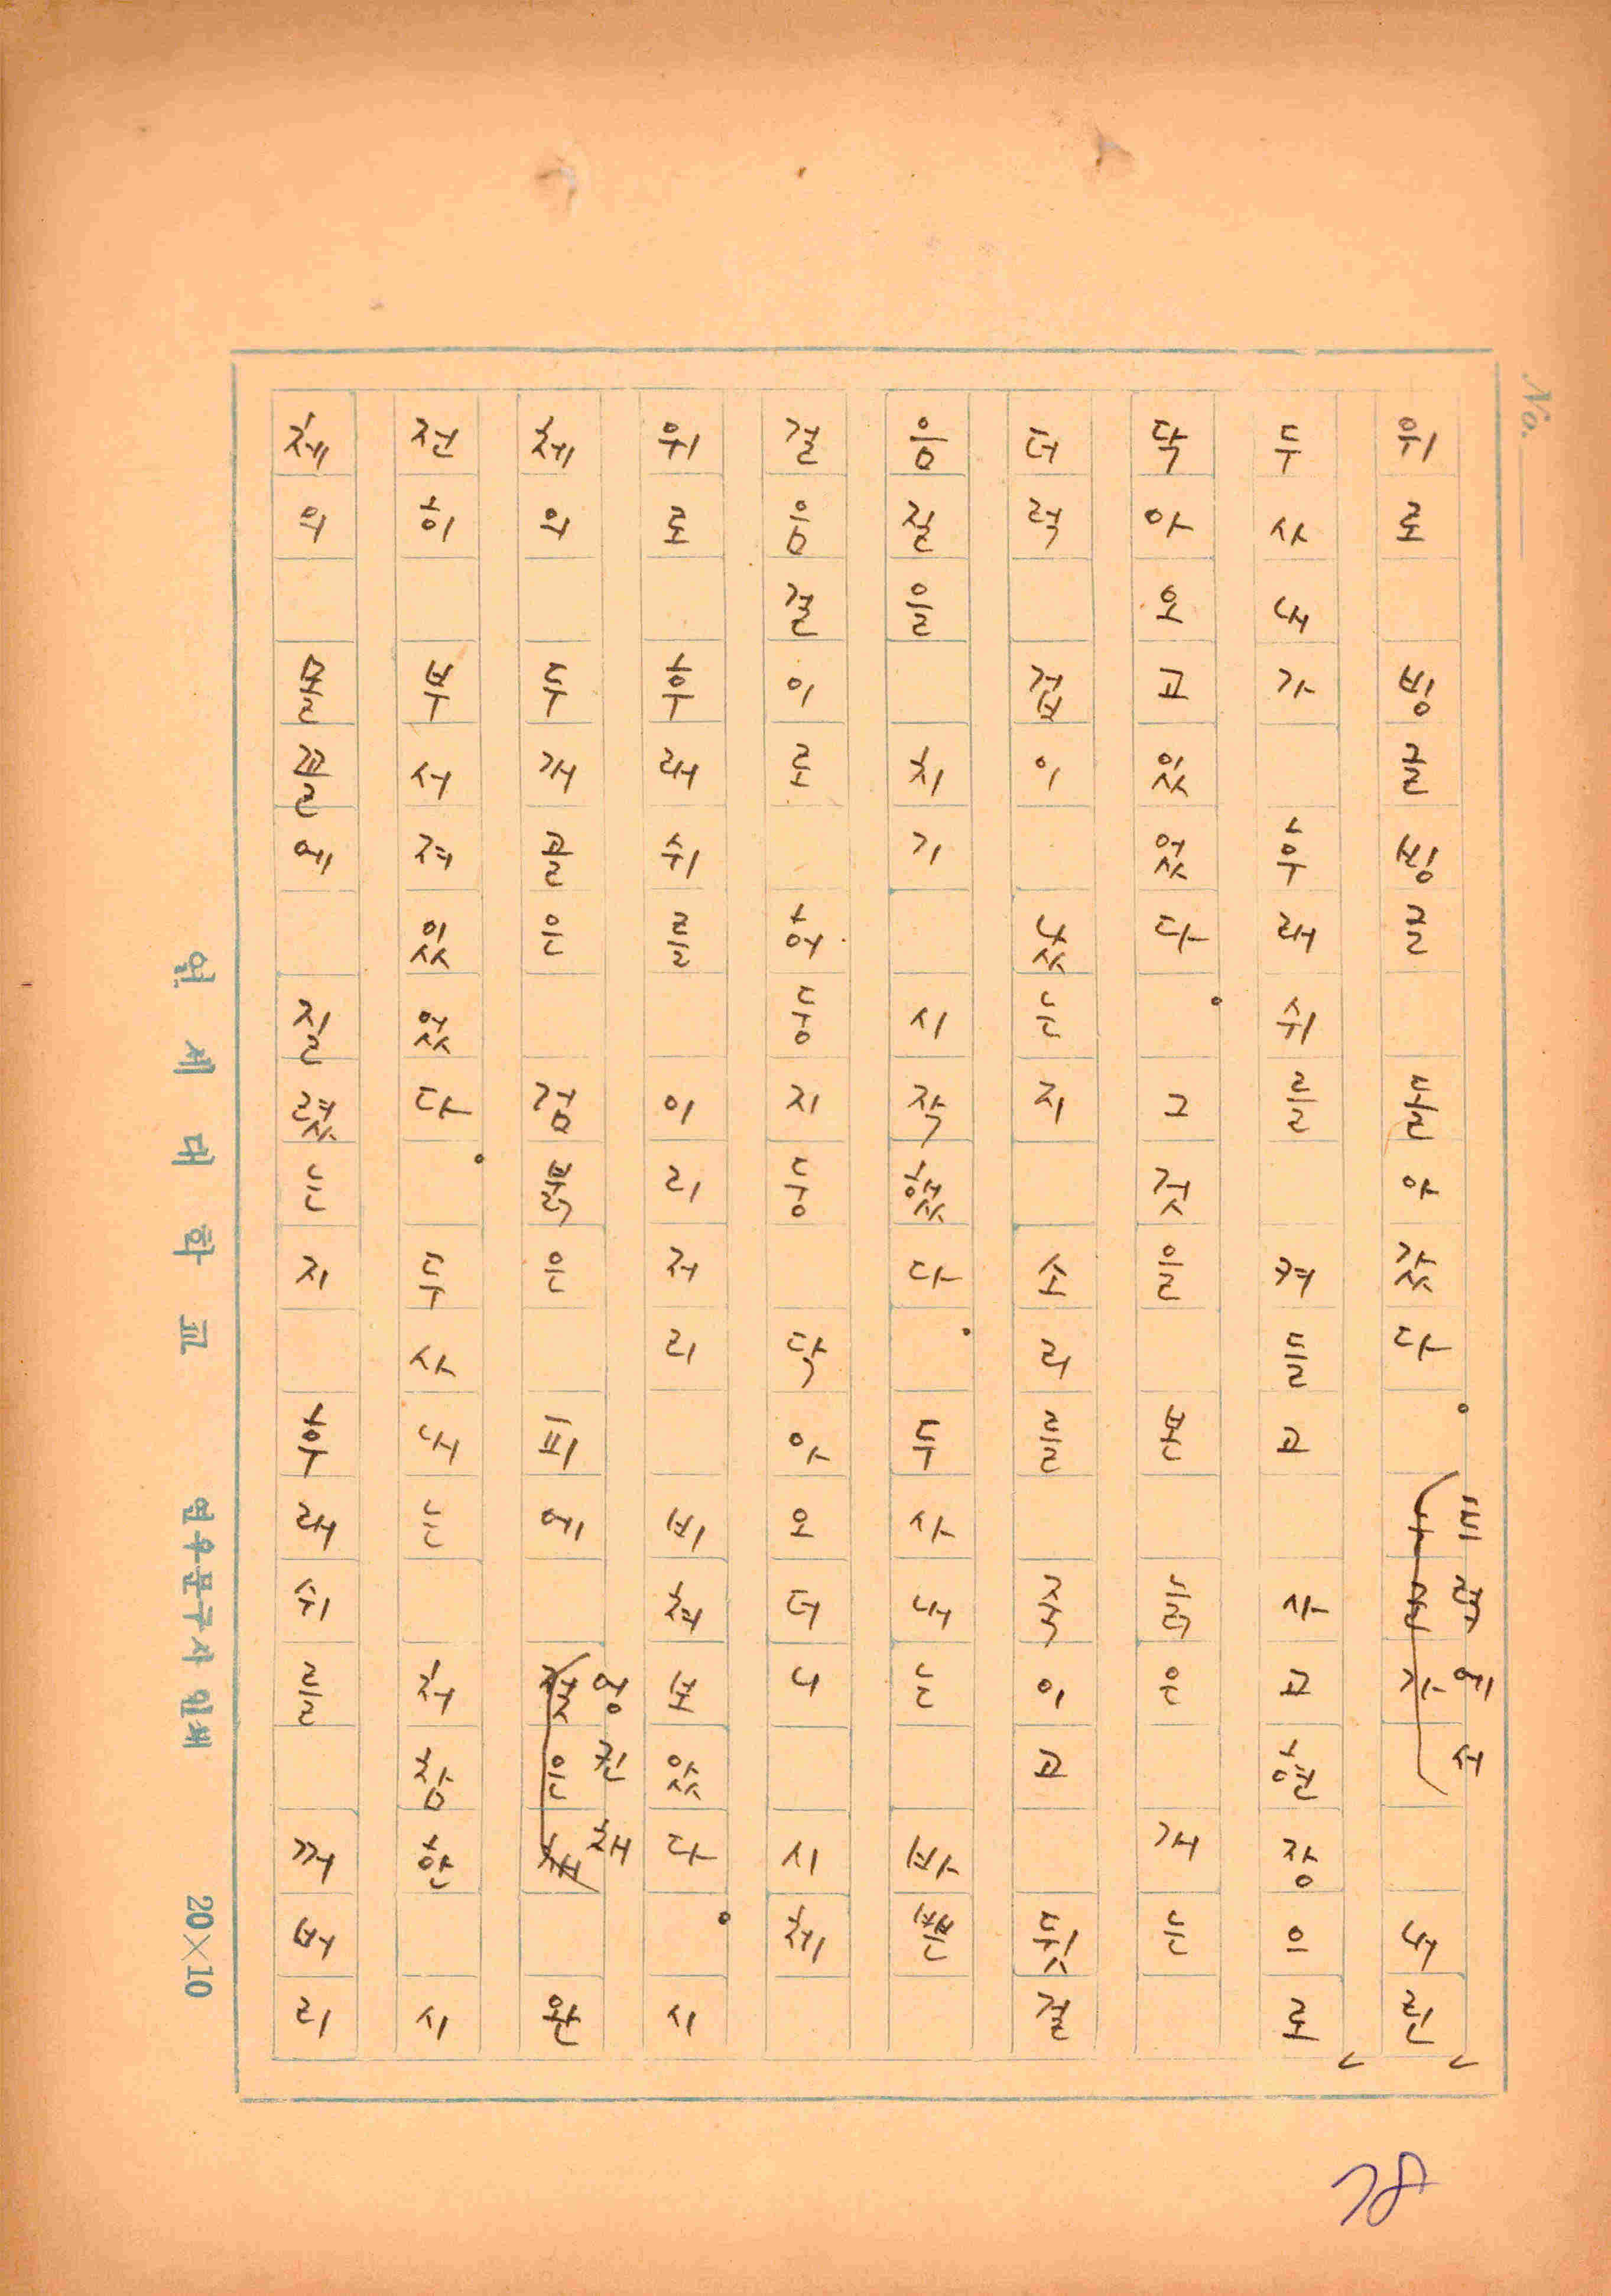 No.
위로 빙글빙글 돌아갔다. 트럭에서 내린
두사내가 후래쉬를 켜들고 사고현장으로
닥아오고있었다. 그것을 본 늙은 개는
더럭 겁이 났는지 소리를 죽이고 뒷걸
음질을 치기 시작했다. 두사내는 바쁜
걸음걸이로 허둥지둥 닥아오더니 시체
위로 후래쉬를 이리저리 비쳐보았다. 시
체의 두개골은 검붉은 피에 엉킨채 완
전히 부서져있었다. 두사내는 처참한 시
체의 몰골에 질렸는지 후래쉬를 꺼버리
연세대학교 연우문구사 인쇄 20×10
78